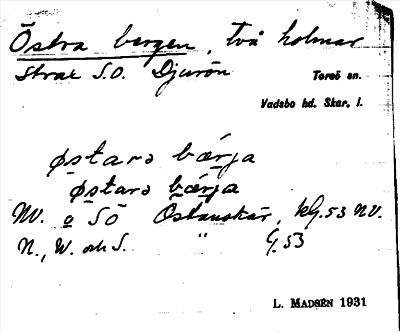 Östra bergen, två holmar
strax S.O. Djurön
Toreö sn.
Vadsbo hd. Skar. l.
østarə bærja
østarə bærja
NV. o SÖ Östanskär, kG.53 NV.
N., W. och S. " G.53
L. MADSÉN 1931